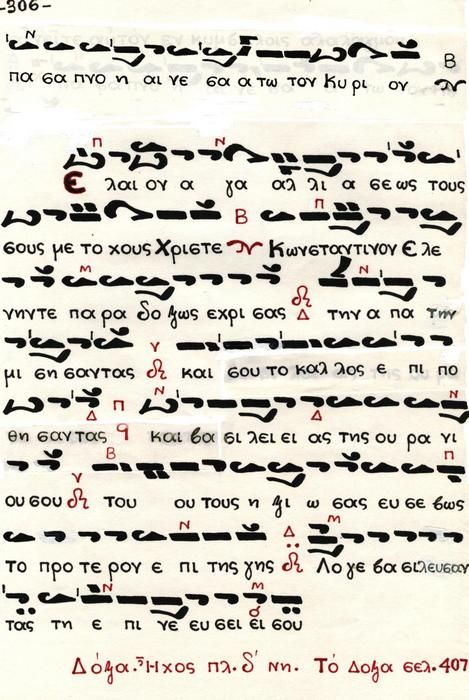 -306-
πα σα πνο η αι νε σα α τω τον Κυ ρι ον Β
Ε λαι ον α γα αλ λι α σε ως τους
σους με το χους Χριστε Β Κωνσταντινον Ε λε
νην τε πα ρα δο ξως εχρι σας Δ την α πα την
μι ση σαντας γ και σου το καλ λος ε πι πο
θη σαντας q και βα σι λει ει ας της ου ρα νι
ου σου γ του ου τους η ξι ω σας ευ σε βως
το προ τε ρον ε πι της γης Δ Λο γε βα σιλευσαν
τας τη ε πι νε ευ σει ει σου
Δόξα. Ἦχος πλ. δ´ νη. Τό Δοξα σελ. 407